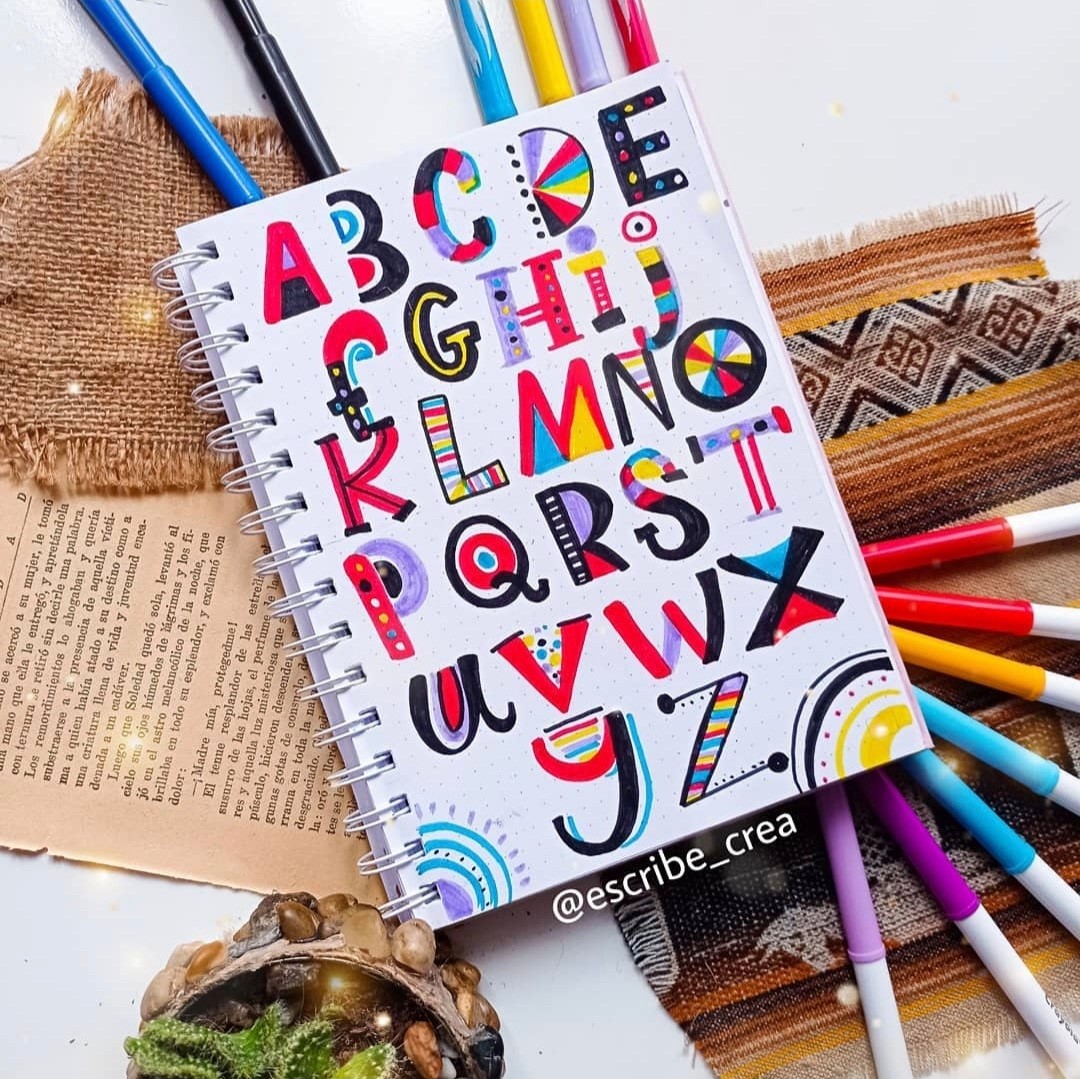 A B C D E
F G H i j
K L M N O
P Q R S T
U V W X
y Z
@escribe_crea
D
A
se acercó a su mujer, le tomó
mano que ella le entregó, y apretándola
con ternura se retiró sin decirle una palabra.
Los remordimientos lo ahogaban y quería
substraerse a la presencia de aquella vícti-
ma a quien había atado a su destino como a
una criatura llena de vida y juventud enca-
denada a un cadáver.
Luego que Soledad quedó sola, levantó al
cielo sus ojos húmedos de lágrimas y los fi-
jó en el astro melancólico de la noche, que
brillaba en todo su esplendor, y exclamó con
dolor:
—¡Madre mía, protegedme!
El tenue resplandor de las
susurro de las hojas, el perfume de
res y aquella luz misteriosa que
púsculo, hicieron descender
gunas gotas de
rrama en toda la
la: oró
tes se